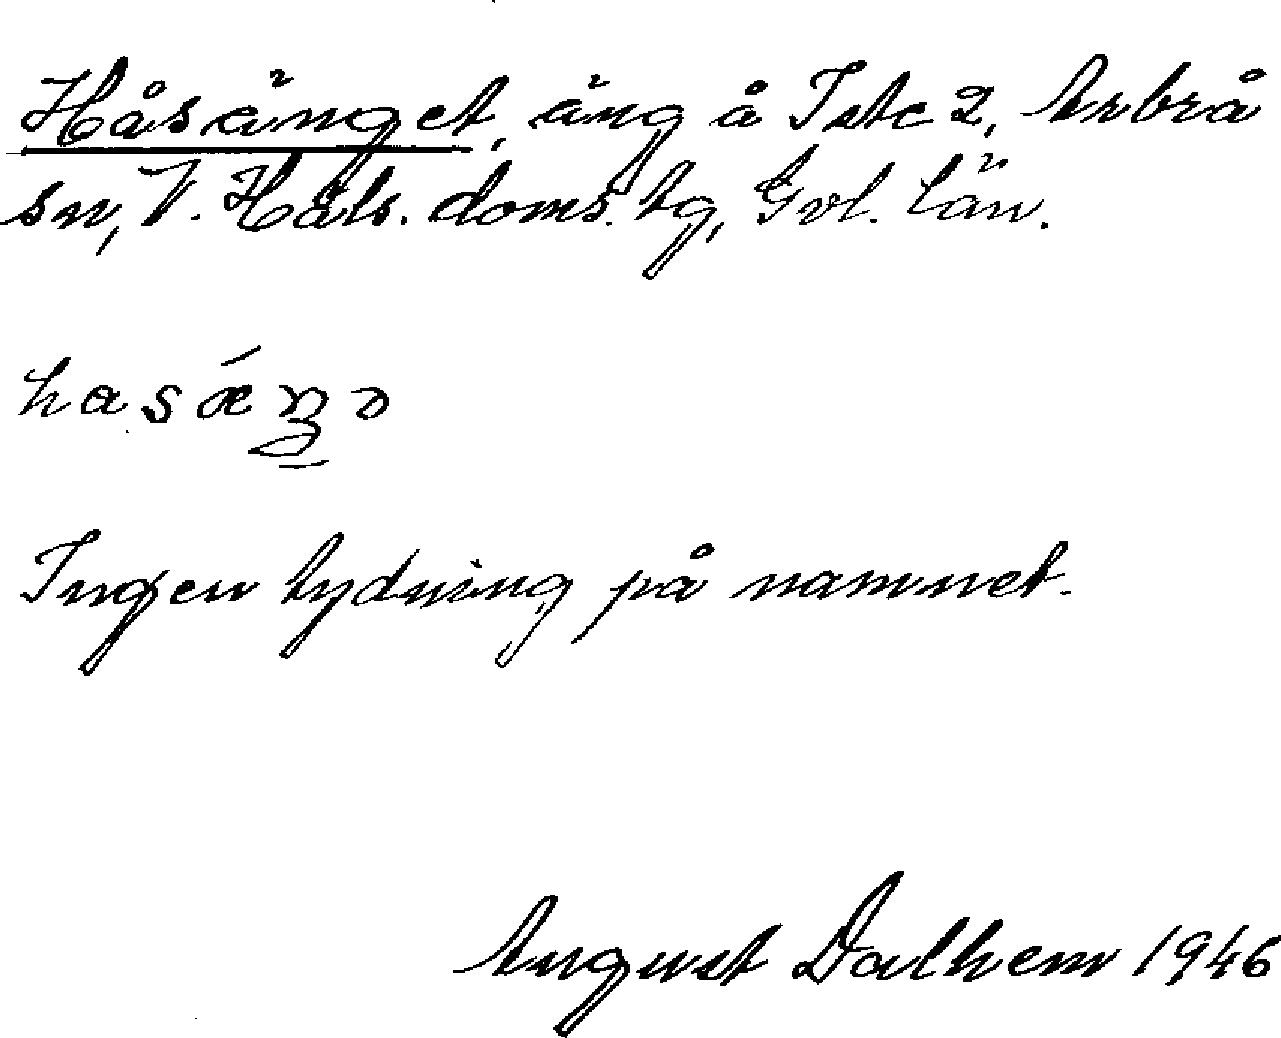 Håsänget, äng å Iste 2, Arbrå
sn, V. Häls. doms. tg, Gvl. län.
hasǽŋə
Ingen tydning på namnet.
August Dalhem 1946